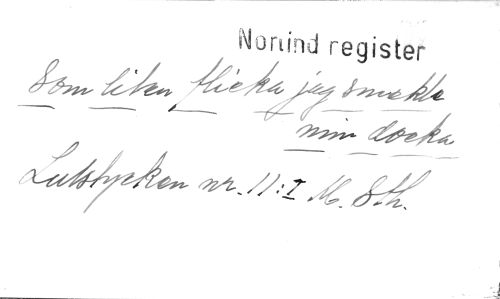 Norlind register
Som liten flicka jag smekte
min docka
Lutstycken nr. 11:I M. Sth.